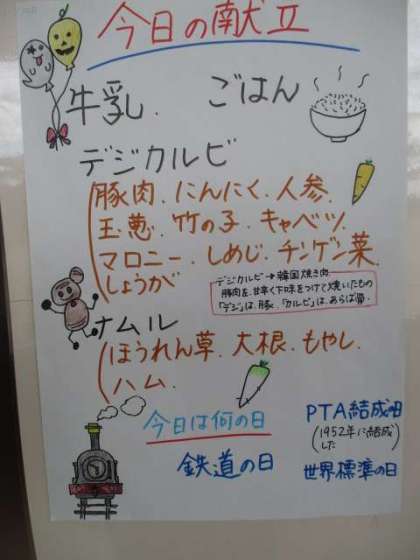 今日の献立
牛乳. ごはん
デジカルビ
豚肉.にんにく.人参.
玉葱.竹の子.キャベツ.
マロニー.しめじ.チンゲン菜.
しょうが
デジカルビ→韓国焼き肉
豚肉を甘辛く下味をつけて焼いたもの
「デジ」は、豚、「カルビ」は、あばら骨.
ナムル
ほうれん草.大根.もやし.
ハム.
今日は何の日
PTA結成の日
(1952年に結成
した)
鉄道の日
世界標準の日